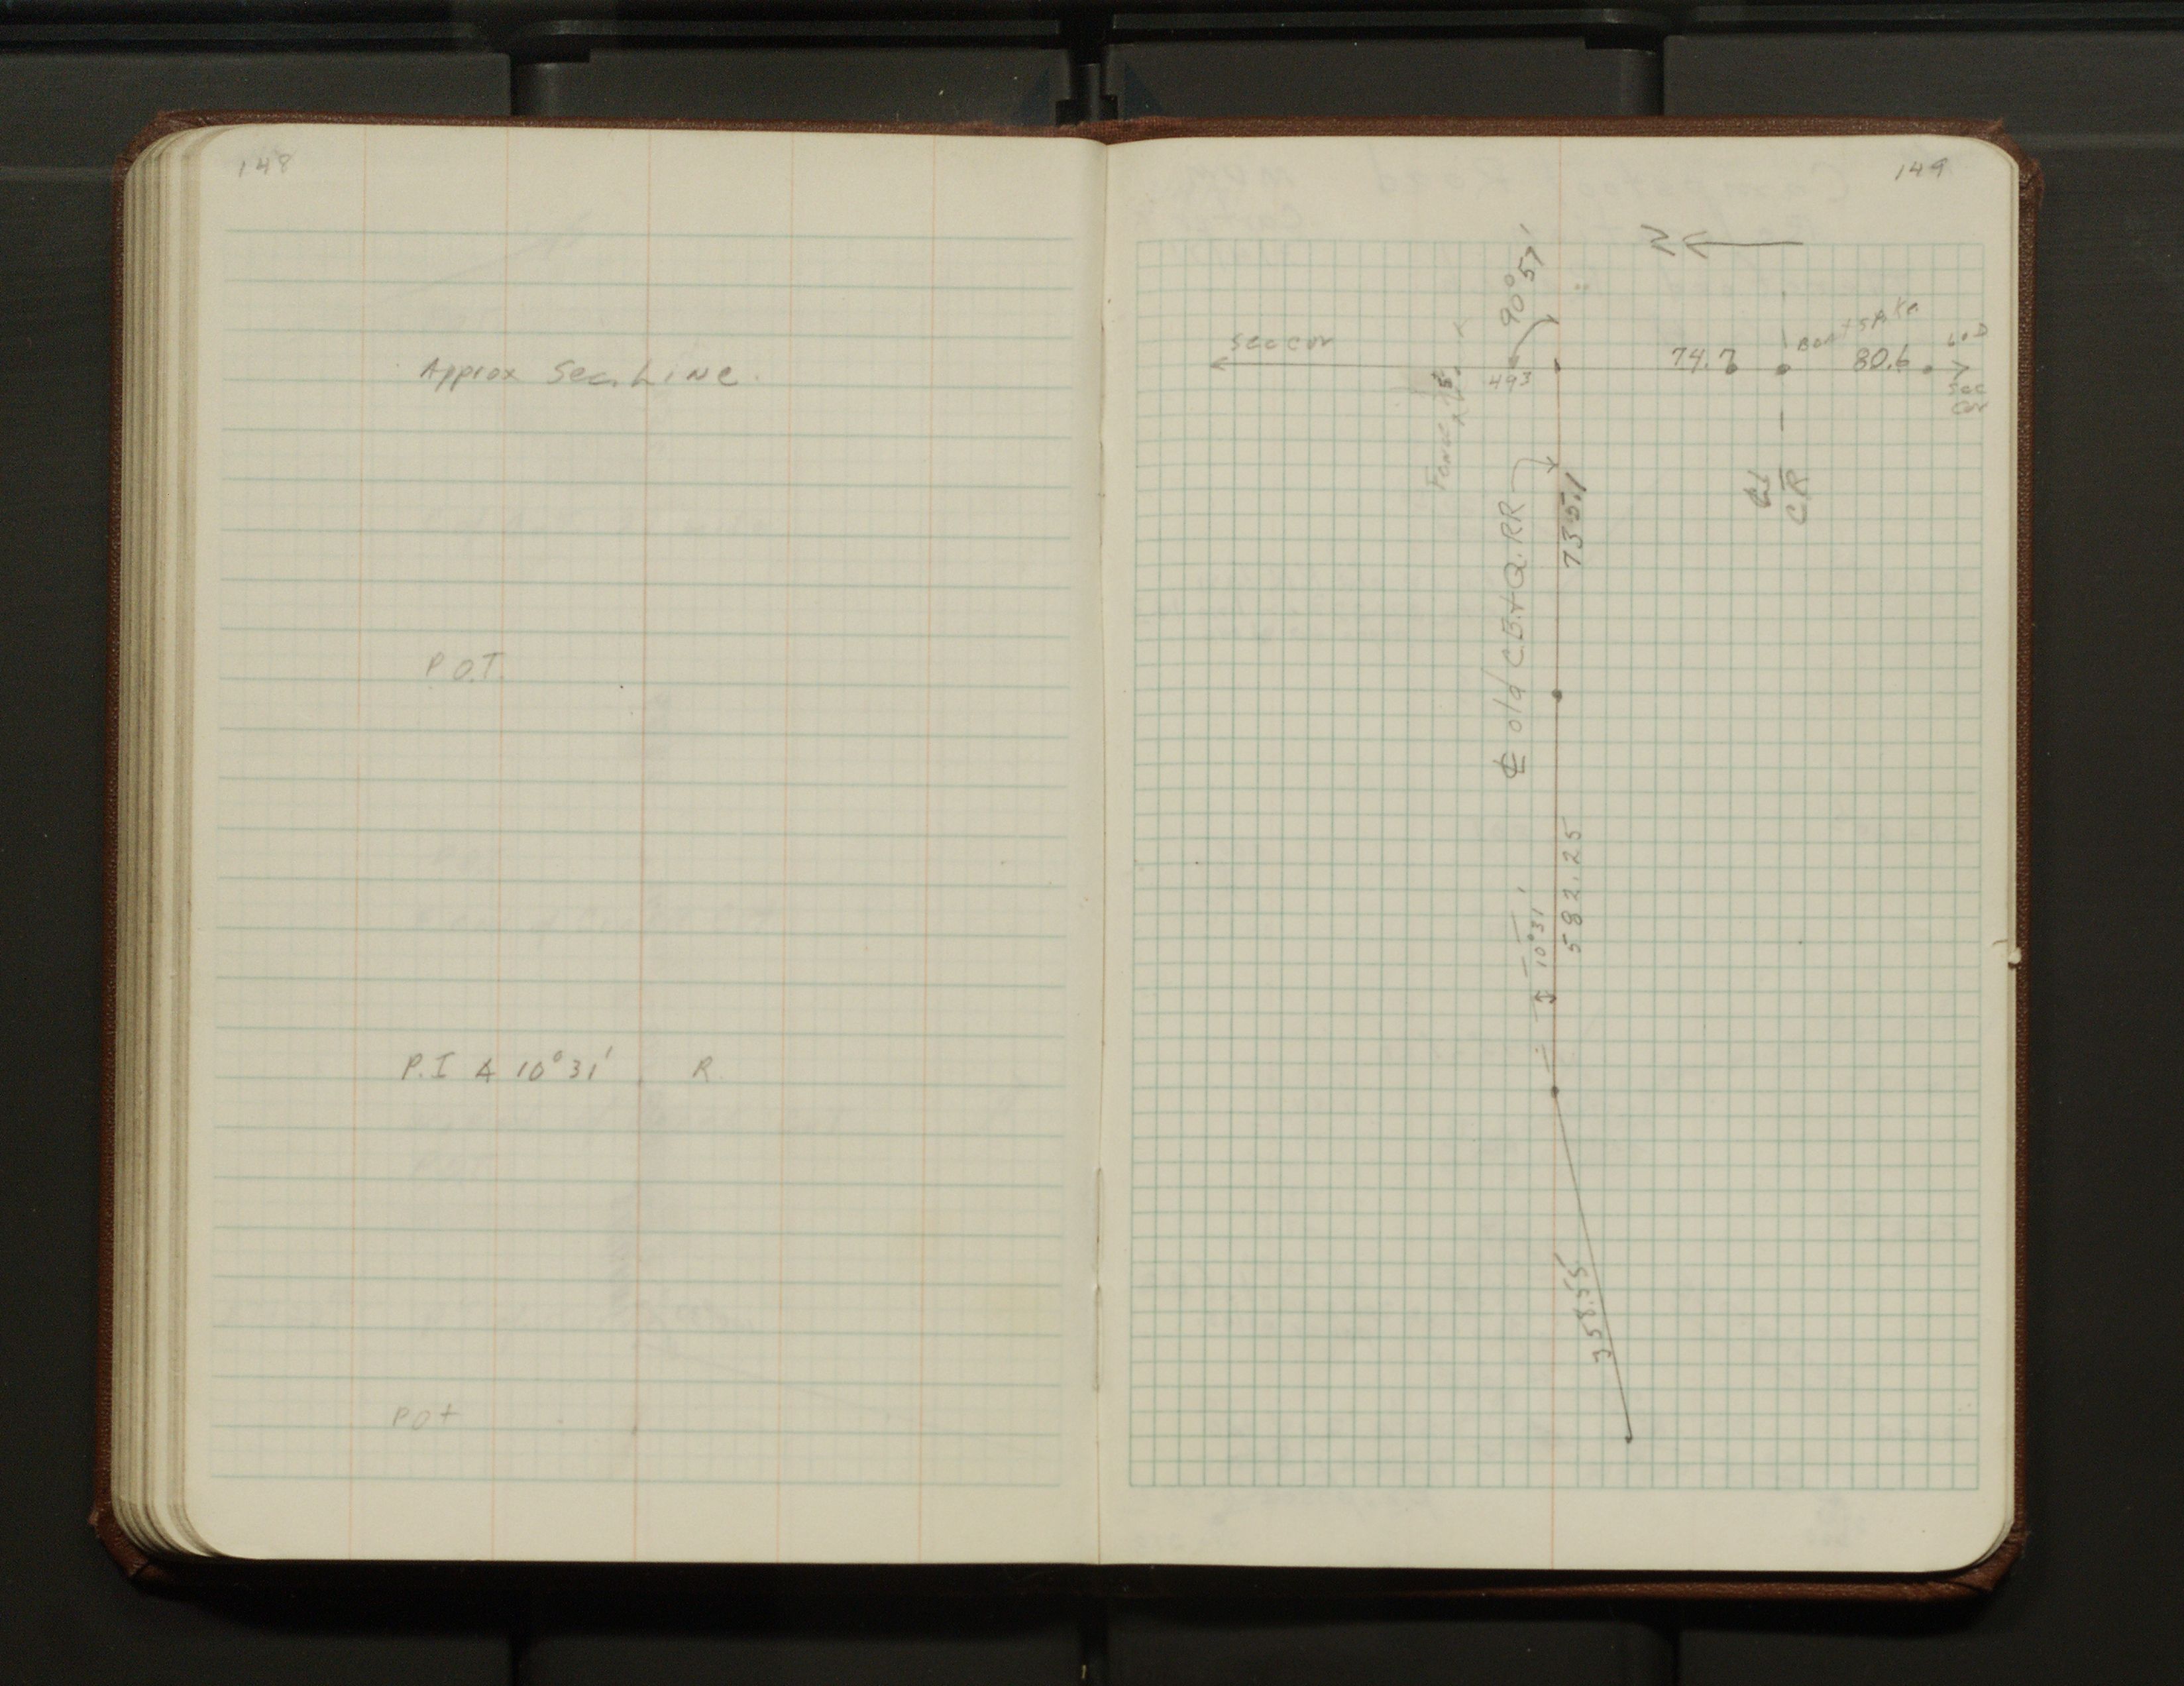 148
Approx Sec. Line.
P.O.T.
P.I Δ 10°31' R.
POt
149
N
90°51'
sec cor
493
74.7
80.6
Sec
Cor
Fence
℄ old C.B.+Q. RR
735.1
CR
582.25
10°31'
358.55